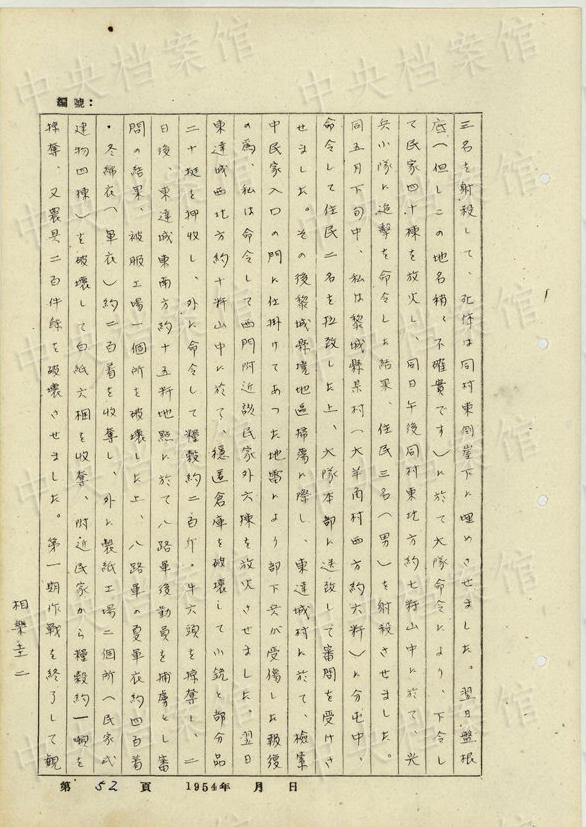 中央档案馆
編號：
三名を射殺して、死体は同村東側崖下に埋めさせました。翌日盤根
底（但しこの地名稍々不確実です）に於て大隊命令により、下令し
て民家四十棟を放火し、同日午後同村東北方約七粁山中に於て、光
兵小隊に追撃を命令した結果 住民三名（男）を射殺させました。
同五月下旬中、私は黎城縣景村（大羊角村西方約六粁）に分屯中、
命令して住民二名を拉致した上、大隊本部に送致して審問を受けさ
せました。その後黎城縣境地區掃蕩に際し、東達城村に於て、検索
中民家入口の門に仕掛けてあった地雷により部下兵が受傷した報復
の為、私は命令して西門附近該民家外六棟を放火させました。翌日
東達城西北方約十粁山中に於て、隠匿倉庫を破壊して小銃と部分品
二十挺を押収し、外に命令して糧穀約二百斤、牛六頭を掠奪し、二
日後、東達城東南方約十五粁地点に於て八路軍後勤員を捕虜とし審
問の結果、被服工場一個所を破壊した上、八路軍の夏軍衣約四百着
・冬綿衣（軍衣）約二百着を収奪し、外に製紙工場二個所（民家式
建物四棟）を破壊して白紙六梱を収奪、附近民家から糧穀約一噸を
掠奪、又農具二百件餘を破壊させました。第一期作戦を終了して観
相樂圭二
第 52 頁 1954年 月 日